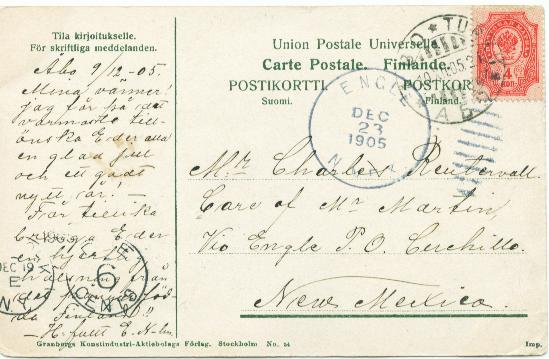 Tila kirjoitukselle.
För skriftliga meddelanden.
Åbo 9/12-05.
Mina vänner!
jag får på det
varmaste till-
önska Eder alla
en glad jul
och ett godt
nytt år! –
Får tillika
bringa Eder
en hjertlig
från
det
Finland!!
Union Postale Universelle.
Carte Postale. Finlande.
POSTIKORTTI. POSTKORT
Suomi. Finland.
TUR
ÅBO
4
КОП
ENGLE
DEC
23
1905
N. MEX.
Mr. Charles Reutervall.
Care of Mr Martin,
Via Engle P. O. Cuchillo.
New Mexico.
1905
DEC 19
N.Y.
6
CENTS
Granbergs Konstindustri-Aktiebolags Förlag. Stockholm No. 54
Imp.